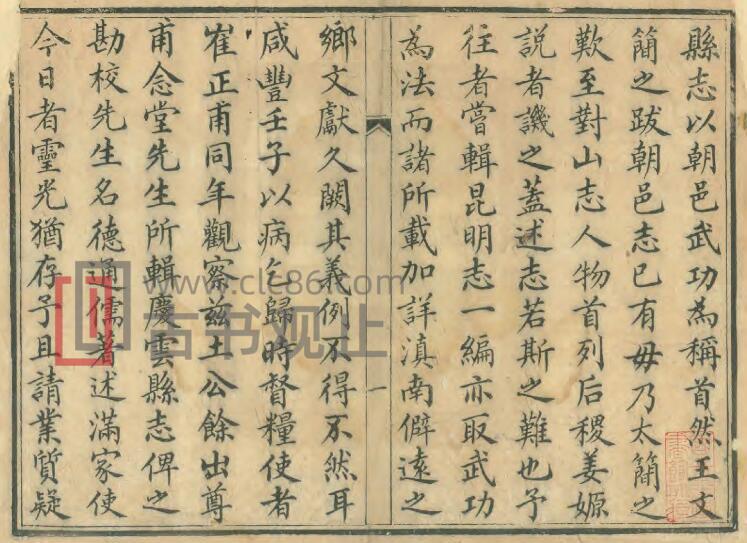 縣志以朝邑武功為稱首然王文
簡之跋朝邑志已有毋乃太簡之
歎至對山志人物首列后稷姜嫄
説者譏之蓋述志若斯之難也予
往者嘗輯昆明志一編亦取武功
為法而諸所載加詳滇南僻遠之
一
鄉文獻久闕其義例不得不然耳
咸豐壬子以病乞歸時督糧使者
崔正甫同年觀察兹土公餘出尊
甫念堂先生所輯慶雲縣志俾之
勘校先生名德通儒著述滿家使
今日者靈光猶存予且請業質疑
www.clc86.com
古书观止